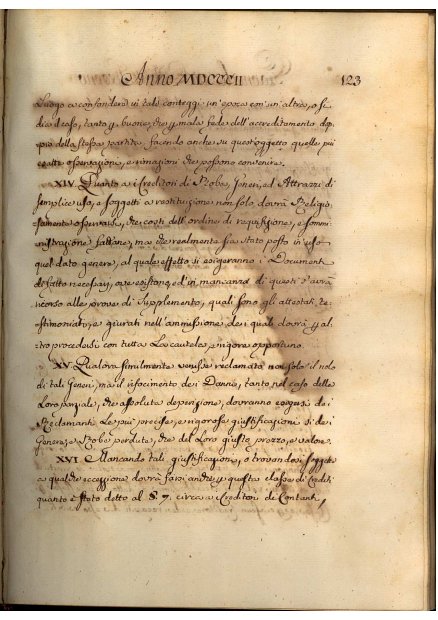 Anno MDCCCII 123
Luogo a confondere in tali conteggi un' epoca con un' altra, o se
dica il caso, tanto p. buona, che p. mala fede dell' accreditamento dop-
pio della stessa partita, facendo anche su quest' oggetto quelle più
esatte osservazioni, e rimazioni che possono convenire.
XIV. Quanto a i Creditori di Robe, Generi, ed Attrazzi di
semplice uso, e soggetti a restituzione non solo dovrà Religio-
samente osservarsi, che costi dell' ordine di requisizione, e sommi-
nistrazione fattane, ma che realmente sia stato posto in uso
quel dato genere, al quale effetto si esigeranno i Documenti
di fatto necessarj, ove esistono, ed in mancanza di questi s' avrà
ricorso alle prove di supplemento, quali sono gli attestati, te-
stimoniati, e giurati nell' ammissione dei quali dovrà p. al-
tro procedersi con tutta La cautela, e rigore opportuno.
XV. Qualora similmente venisse reclamato non solo il nolo
di tali Generi, ma il rifacimento dei Danni, tanto nel caso della
Loro parziale, che assoluta deperizione, dovranno esigersi dei
Reclamanti Le più precise, e rigorose giustificazioni sì dei
Generi, e Robe perdute, che del Loro giusto prezzo, e valore.
XVI. Mancando tali giustificazioni, o trovandosi soggette
a qualche eccezione dovrà farsi anche p. questa classe di Crediti
quanto è stato detto al §. 7. circa a i Creditori de Contanti,